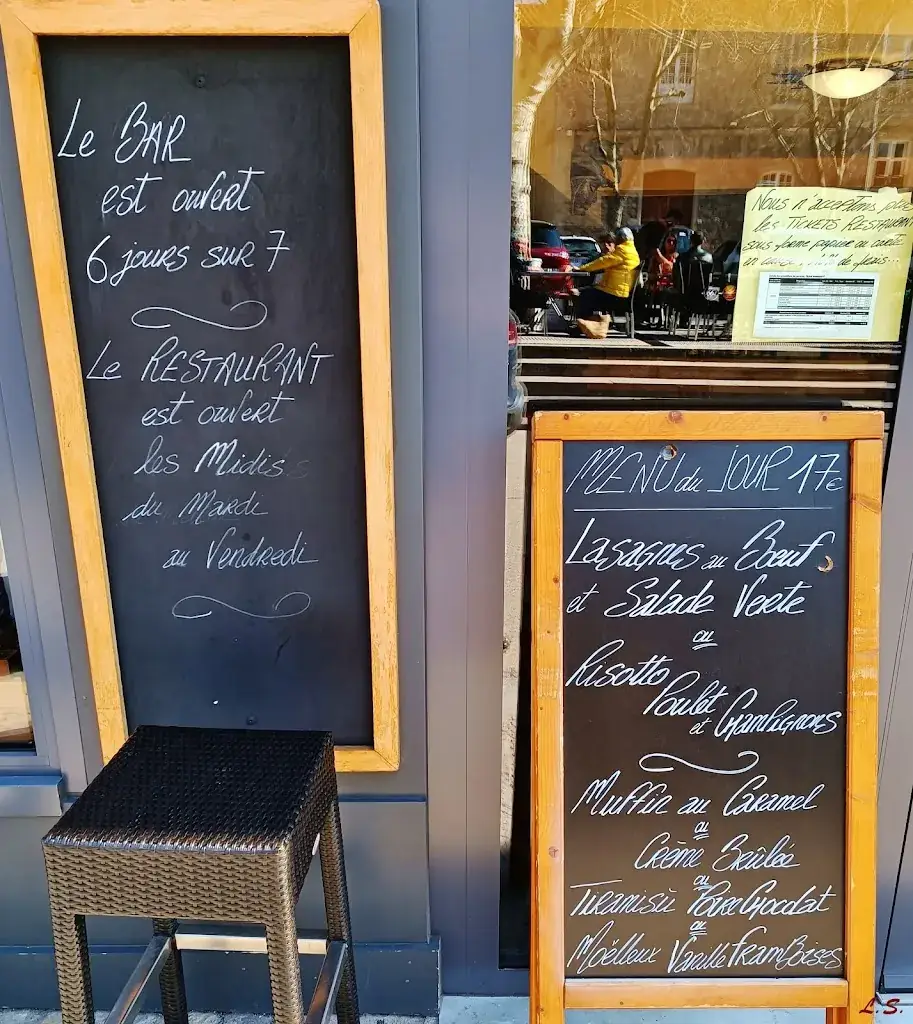 Le BAR
est ouvert
6 jours sur 7
Le RESTAURANT
est ouvert
les Midis
du Mardi
au Vendredi
Nous n'acceptons plus
les TICKETS RESTAURANT
sous forme papier ou carte
en
MENU du JOUR 17€
Lasagnes au Boeuf
et Salade Verte
ou
Risotto
Poulet
et Champignons
Muffin au Caramel
ou
Crème Brûlée
ou
Tiramisù Poire Chocolat
ou
Moëlleux Vanille Framboises
L.S.